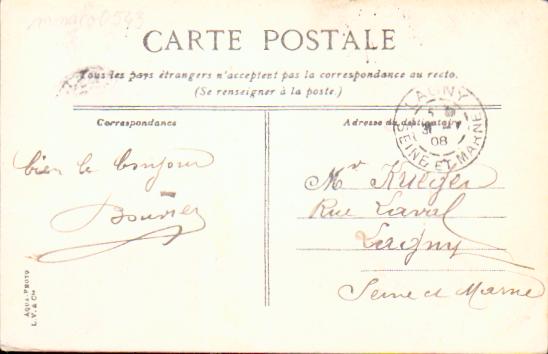 CARTE POSTALE
Tous les pays étrangers n'acceptent pas la correspondance au recto.
(Se renseigner à la poste.)
Correspondance
Adresse du destinataire
LAGNY
31
08
SEINE ET MARNE
bien le bonjour
Bouvier
Mr Krieger
Rue Laval
Lagny
Seine et Marne
Aqua-Photo
L. V. & Cie